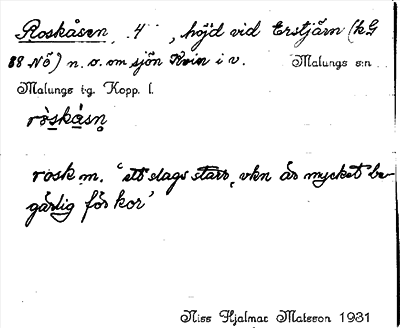 Roskåsen, 4 , höjd vid Erstjärn (kG
88 NÖ) n.o. om sjön Kvin i v. Malungs s:n
Malungs tg. Kopp. l.
ròskåsn
rosk m. 'ett slags starr, vkn är mycket be-
gärlig för kor'
Niss Hjalmar Matsson 1931